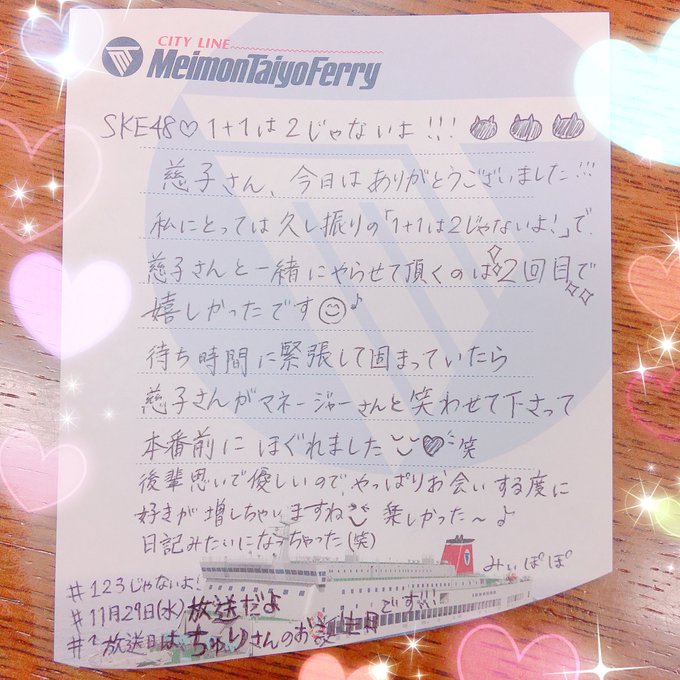 CITY LINE
MeimonTaiyoFerry
SKE48♡1+1は2じゃないよ!!!
慈子さん、今日はありがとうございました!!!
私にとっては久し振りの「1+1は2じゃないよ!」で
慈子さんと一緒にやらせて頂くのは2回目で
嬉しかったです☺♪
待ち時間に緊張して固まっていたら
慈子さんがマネージャーさんと笑わせて下さって
本番前にほぐれました♥笑
後輩思いで優しいので、やっぱりお会いする度に
好きが増しちゃいますね 楽しかった〜♪
日記みたいになっちゃった(笑)
みぃぱぽ
#123じゃないよ!
#11月29日(水)放送だよ
#放送日はちゅりさんのお誕生日です!!!